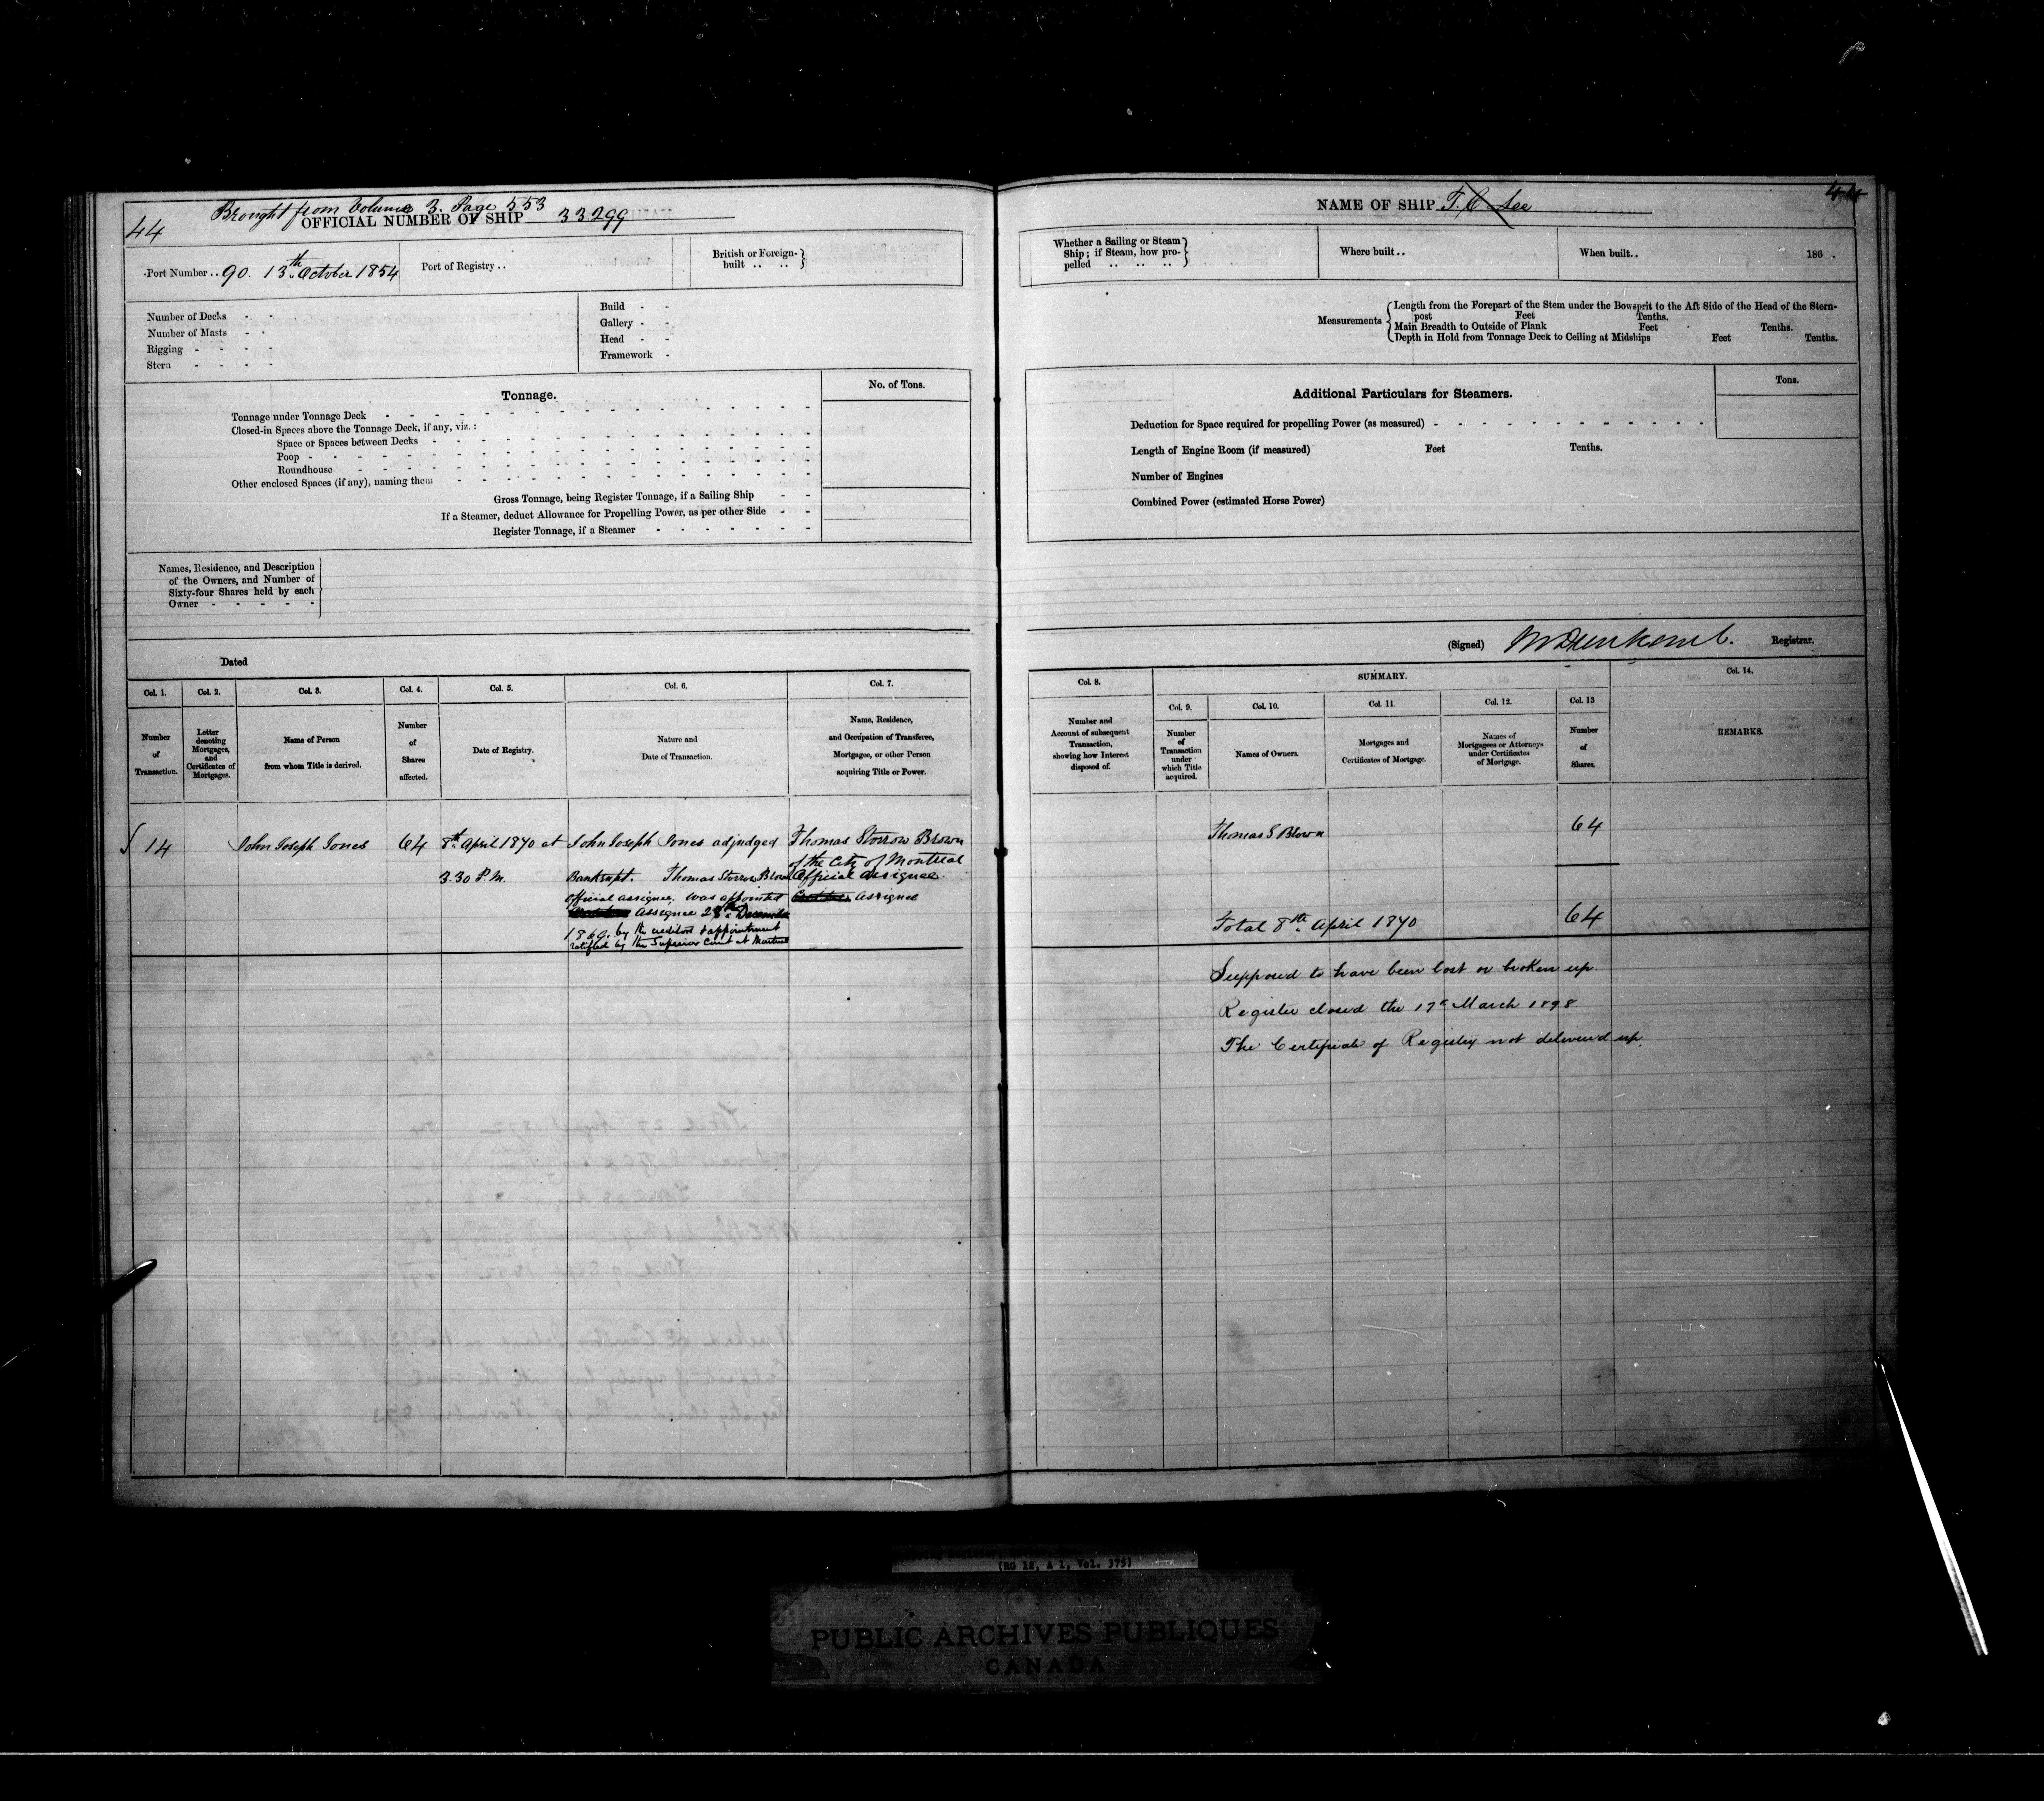 Brought from Volume 3. Page 553
44
OFFICIAL NUMBER OF SHIP 33299
Port Number .. 90. 13th October 1854
Port of Registry ..
British or Foreign-
built .. ..
Number of Decks - -
Number of Masts - -
Rigging - - - -
Stern - - - -
Build - -
Gallery - -
Head - -
Framework -
Tonnage.
No. of Tons.
Tonnage under Tonnage Deck
Closed-in Spaces above the Tonnage Deck, if any, viz.:
Space or Spaces between Decks
Poop
Roundhouse
Other enclosed Spaces (if any), naming them
Gross Tonnage, being Register Tonnage, if a Sailing Ship
If a Steamer, deduct Allowance for Propelling Power, as per other Side
Register Tonnage, if a Steamer
Names, Residence, and Description
of the Owners, and Number of
Sixty-four Shares held by each
Owner - - - - -
Dated
Col. 1.
Col. 2.
Col. 3.
Col. 4.
Col. 5.
Col. 6.
Col. 7.
Number
of
Transaction.
Letter
denoting
Mortgages,
and
Certificates of
Mortgages.
Name of Person
from whom Title is derived.
Number
of
Shares
affected.
Date of Registry.
Nature and
Date of Transaction.
Name, Residence,
and Occupation of Transferee,
Mortgagee, or other Person
acquiring Title or Power.
14
John Joseph Jones
64
8th April 1870 at
3.30 P.M.
John Joseph Jones adjudged
Bankrupt. Thomas Storrow Brown
official assignee. was appointed
Assignee 28th December
1869. by the creditors & appointment
ratified by the Superior Court at Montreal
Thomas Storrow Brown
of the City of Montreal
Official assignee.
Assignee
44
NAME OF SHIP T. C. Lee
Whether a Sailing or Steam
Ship; if Steam, how pro-
pelled .. .. ..
Where built ..
When built..
186 .
Measurements
Length from the Forepart of the Stem under the Bowsprit to the Aft Side of the Head of the Stern-
post Feet Tenths.
Main Breadth to Outside of Plank Feet Tenths.
Depth in Hold from Tonnage Deck to Ceiling at Midships Feet Tenths.
Additional Particulars for Steamers.
Tons.
Deduction for Space required for propelling Power (as measured)
Length of Engine Room (if measured) Feet Tenths.
Number of Engines
Combined Power (estimated Horse Power)
(Signed) Registrar.
Col. 8.
SUMMARY.
Col. 14.
Col. 9.
Col. 10.
Col. 11.
Col. 12.
Col. 13
Number and
Account of subsequent
Transaction,
showing how Interest
disposed of.
Number
of
Transaction
under
which Title
acquired.
Names of Owners.
Mortgages and
Certificates of Mortgage.
Names of
Mortgagees or Attorneys
under Certificates
of Mortgage.
Number
of
Shares.
REMARKS.
Thomas S Brown 64
Total 8th April 1870 64
Supposed to have been lost or broken up.
Register closed the 17th March 1898
The Certificate of Registry not delivered up.
(RG 12, A 1, Vol. 375)
PUBLIC ARCHIVES PUBLIQUES
CANADA